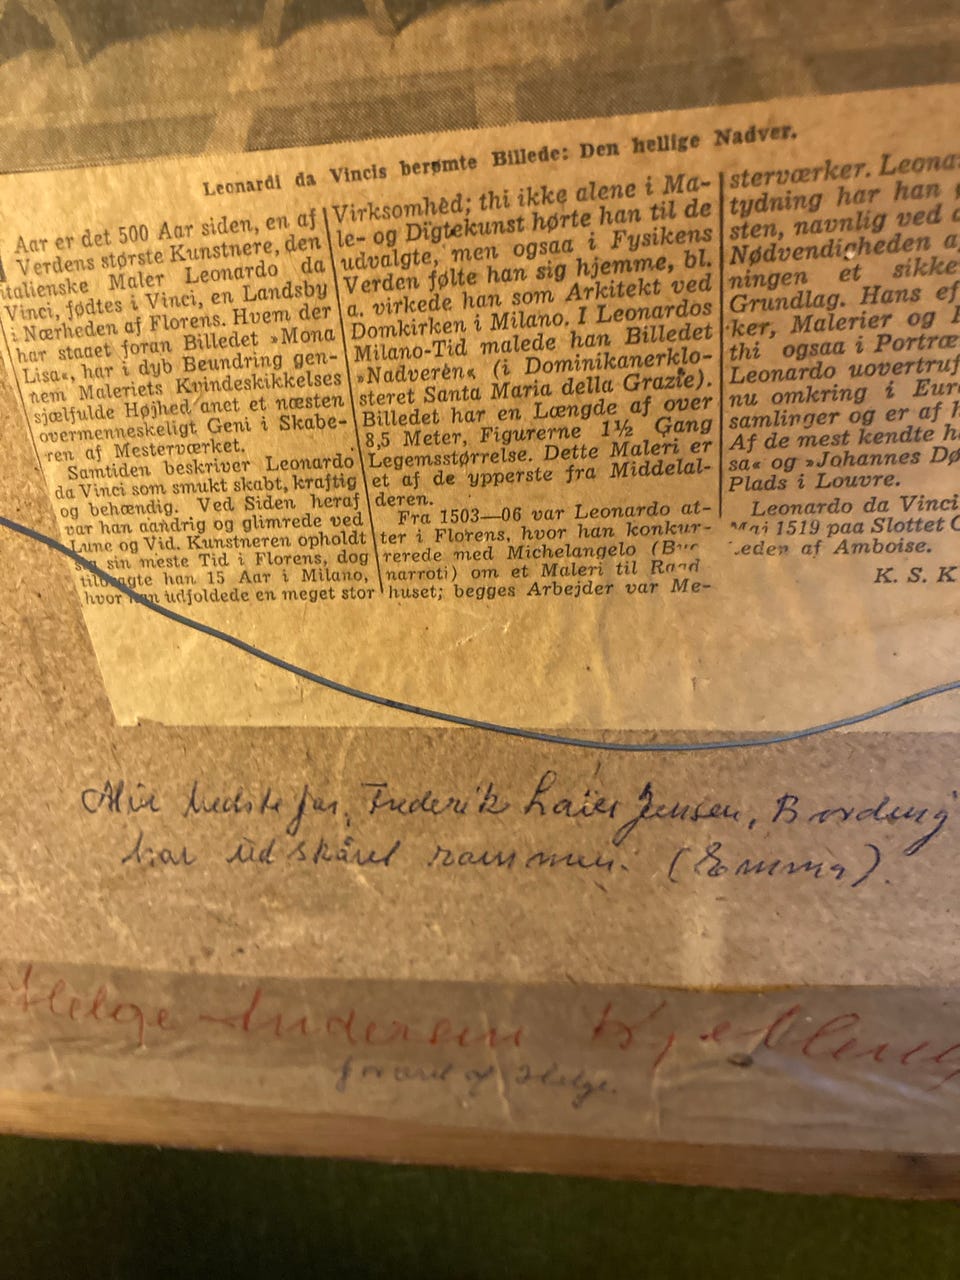 Leonardi da Vincis berømte Billede: Den hellige Nadver.
Aar er det 500 Aar siden, en af
Verdens største Kunstnere, den
italienske Maler Leonardo da
Vinci, fødtes i Vinci, en Landsby
i Nærheden af Florens. Hvem der
har staaet foran Billedet »Mona
Lisa«, har i dyb Beundring gen-
nem Maleriets Kvindeskikkelses
sjælfulde Højhed anet et næsten
overmenneskeligt Geni i Skabe-
ren af Mesterværket.
Samtiden beskriver Leonardo
da Vinci som smukt skabt, kraftig
og behændig. Ved Siden heraf
var han aandrig og glimrede ved
Lune og Vid. Kunstneren opholdt
sig sin meste Tid i Florens, dog
tilbragte han 15 Aar i Milano,
hvor han udfoldede en meget stor
Virksomhed; thi ikke alene i Ma-
le- og Digtekunst hørte han til de
udvalgte, men ogsaa i Fysikens
Verden følte han sig hjemme, bl.
a. virkede han som Arkitekt ved
Domkirken i Milano. I Leonardos
Milano-Tid malede han Billedet
»Nadveren« (i Dominikanerklo-
steret Santa Maria della Grazie).
Billedet har en Længde af over
8,5 Meter, Figurerne 1½ Gang
Legemsstørrelse. Dette Maleri er
et af de ypperste fra Middelal-
deren.
Fra 1503—06 var Leonardo at-
ter i Florens, hvor han konkur-
rerede med Michelangelo
narroti) om et Maleri til
huset; begges Arbejder var Me-
sterværker.
tydning har han
sten, navnlig ved
Nødvendigheden
ningen et
Grundlag. Hans
ker, Malerier og
thi ogsaa i
Leonardo
nu omkring i
samlinger og er af
Af de mest kendte
sa« og »Johannes
Plads i Louvre.
Leonardo da Vinci
Maj 1519 paa Slottet
eden af Amboise.
K. S. K
Min bedstefar, Frederik Laier Jensen, Bording
har udskåret rammen. (Emma).
Helge Andersen
foræret af Helge.